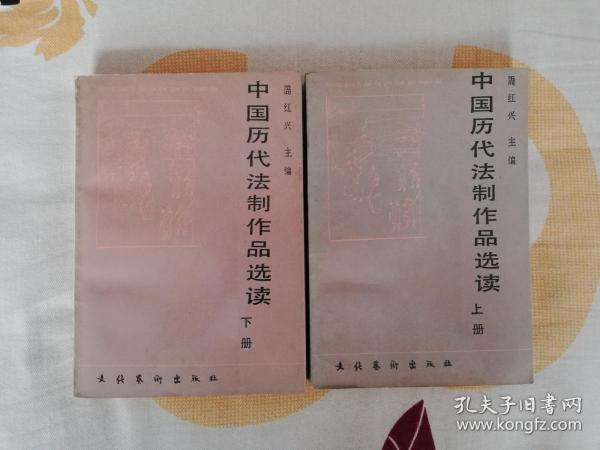 周红兴 主编
中国历代法制作品选读
下册
文化艺术出版社
周红兴 主编
中国历代法制作品选读
上册
文化艺术出版社
孔夫子旧书网
www.kongfz.com